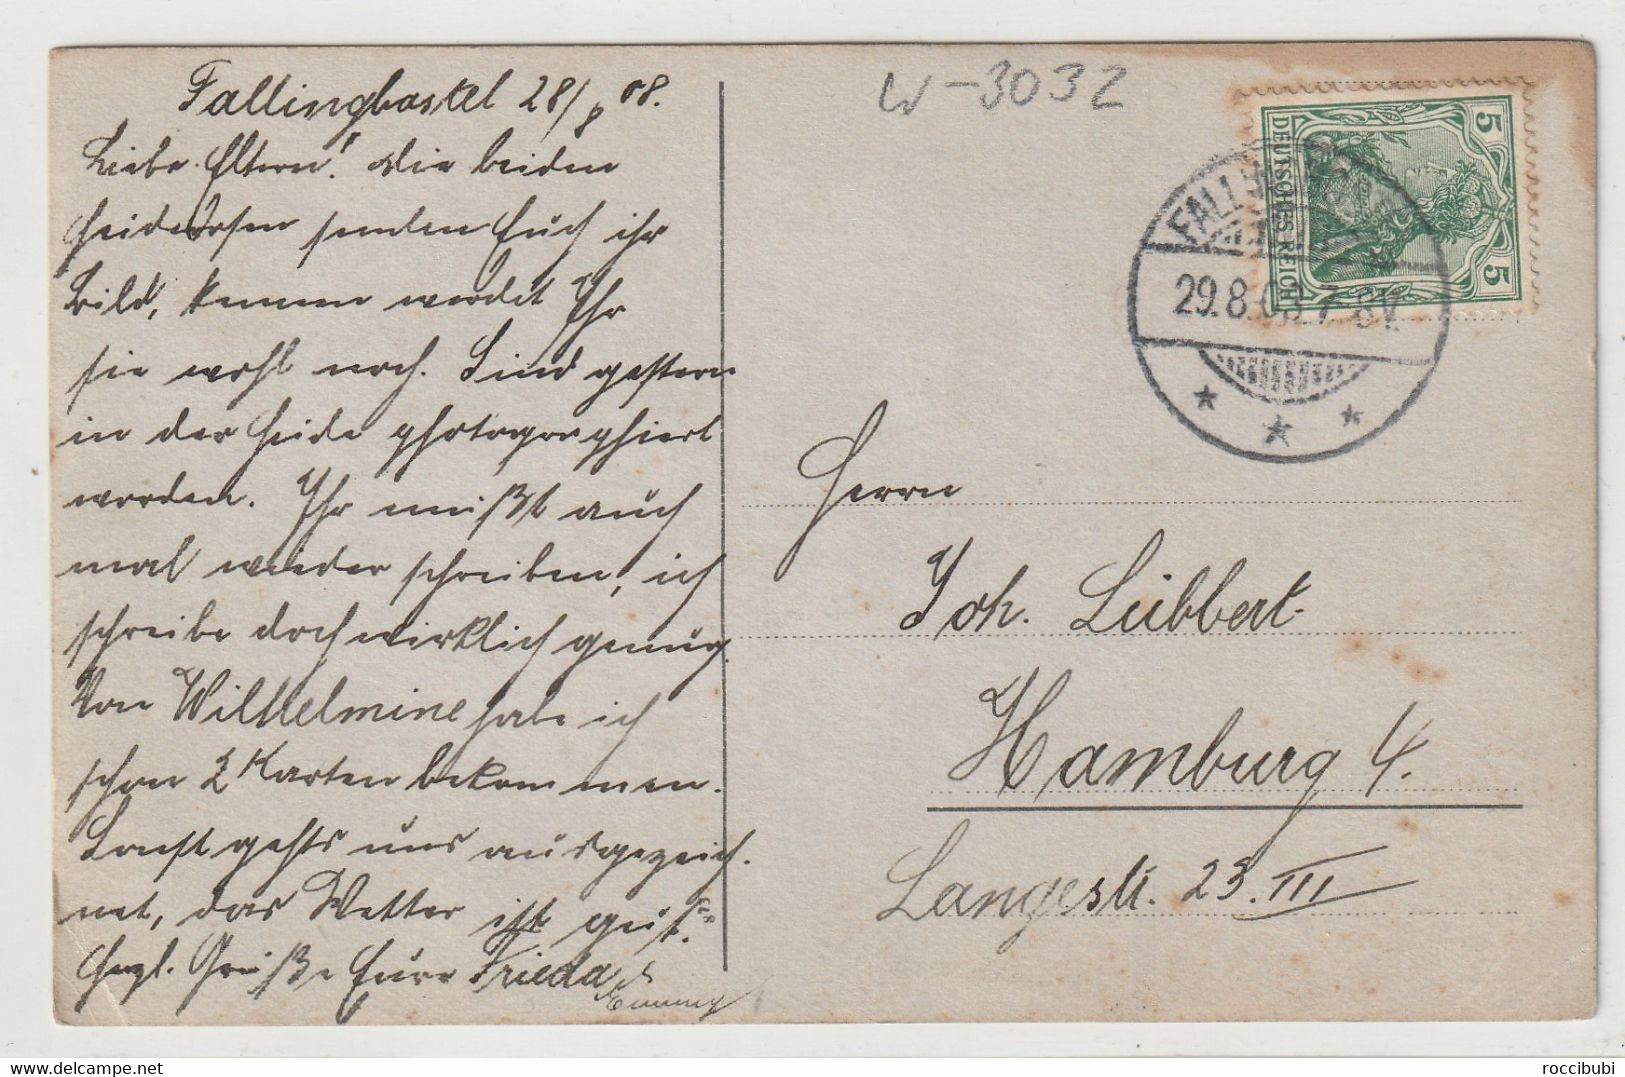 Fallingbostel 28/8 08.
Liebe Eltern! Die beiden
senden Euch ihr
Bild, kennen werdet Ihr
sie wohl noch. Sind gestern
in der Heide photographiert
worden. Ihr müßt auch
mal wieder schreiben, ich
schreibe doch wirklich genug.
Von Wilhelmine habe ich
schon 2 Karten bekommen.
Sonst gehts uns ausgezeich-
net, das Wetter ist gut.
Herzl. Grüße Eure Frieda
W-3032
5 5
DEUTSCHES REICH
29.8.08.7-8V.
Herrn
Joh. Lübbert.
Hamburg 4.
Langestr. 23. III
delcampe.net
roccibubi